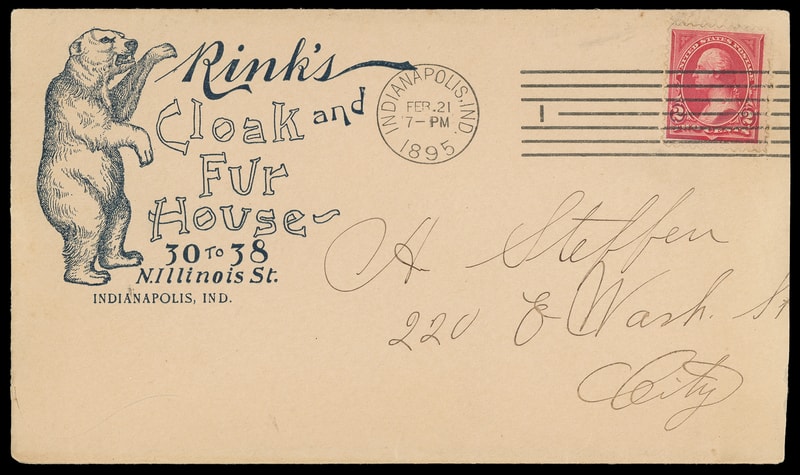 Rink's
Cloak and
Fur
House
30 TO 38
N. Illinois St.
INDIANAPOLIS, IND.
INDIANAPOLIS, IND.
FEB. 21
7-PM
1895
1
UNITED STATES POSTAGE
2 2
A Steffen
220 E Wash. St
City